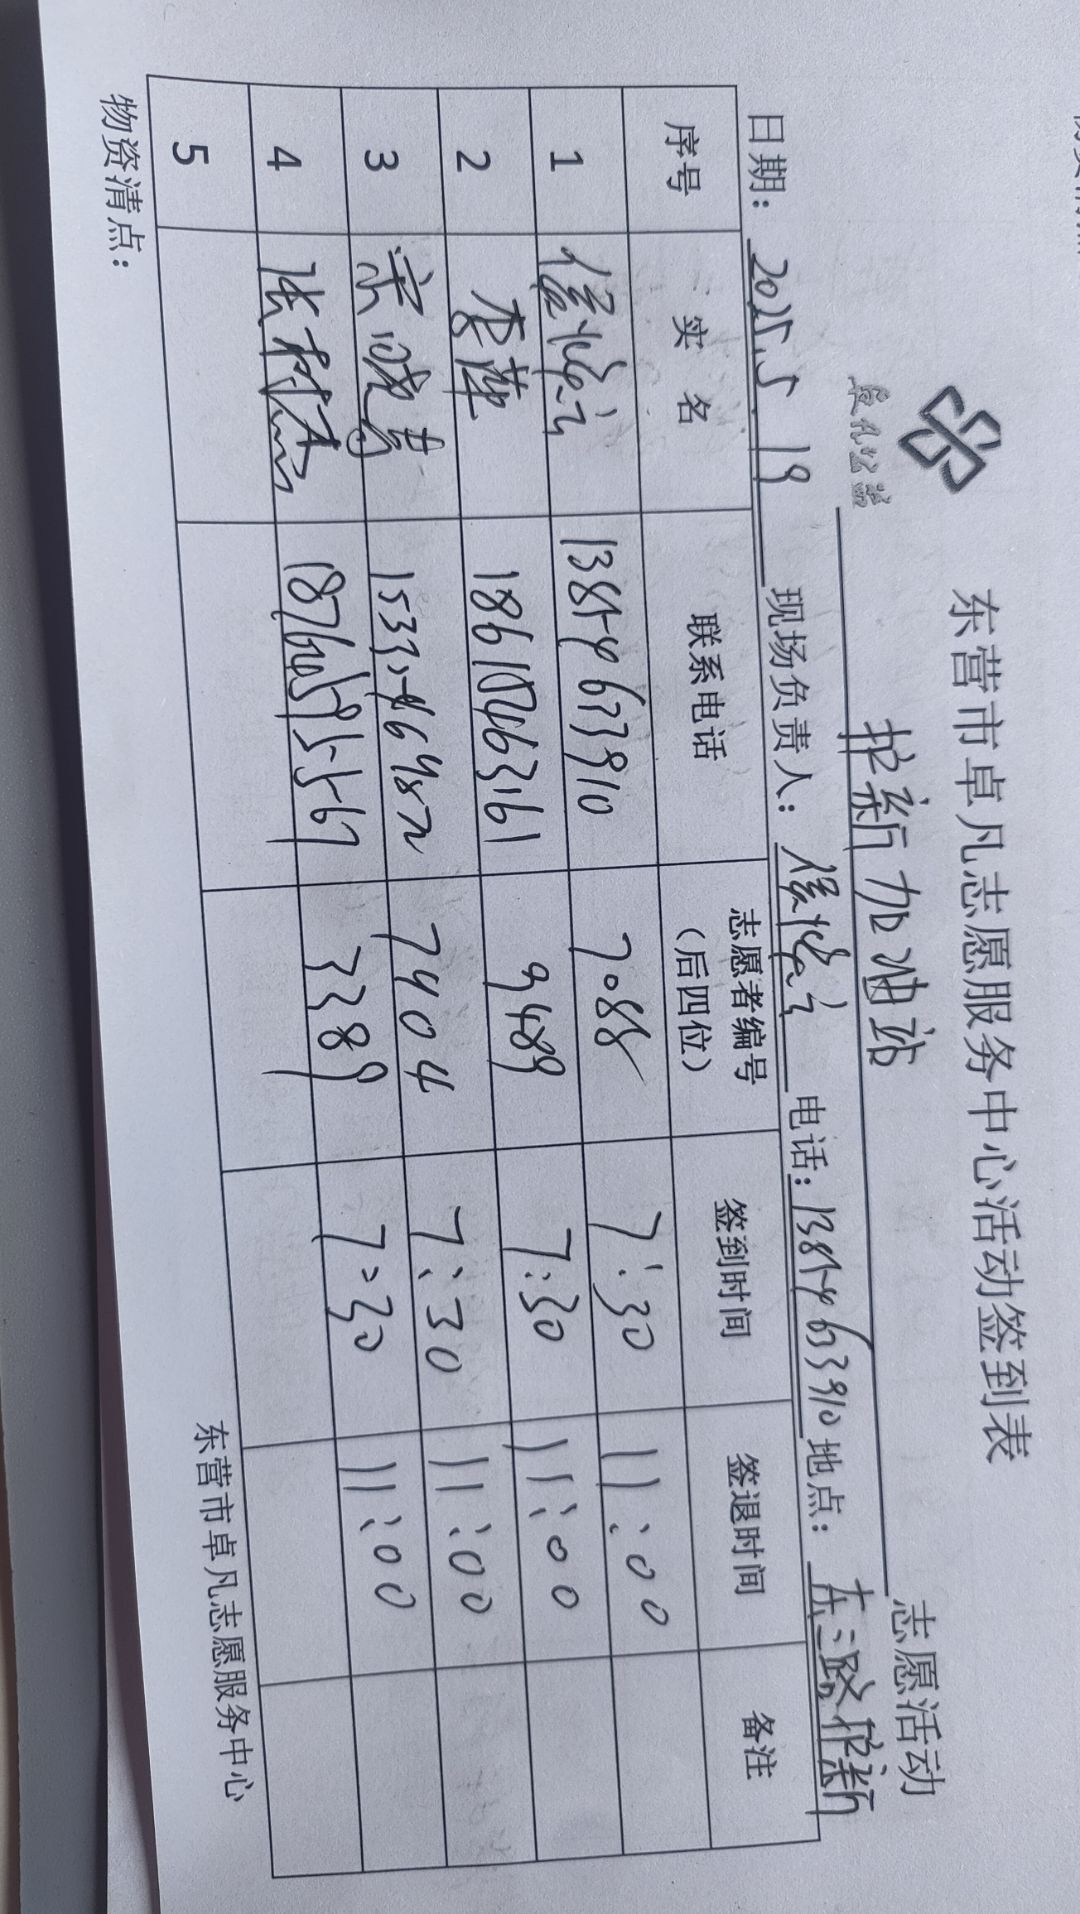 东营市卓凡志愿服务中心活动签到表
护新加油站 志愿活动
日期: 2025.5.19 现场负责人: 电话: 13854673910 地点: 东二路
序号 实名 联系电话 志愿者编号（后四位） 签到时间 签退时间 备注
1 13854673910 7088 7:30 11:00
2 李萍 18610463161 9489 7:30 11:00
3 宋晓 7404 7:30 11:00
4 3389 7:30 11:00
5
物资清点: 东营市卓凡志愿服务中心